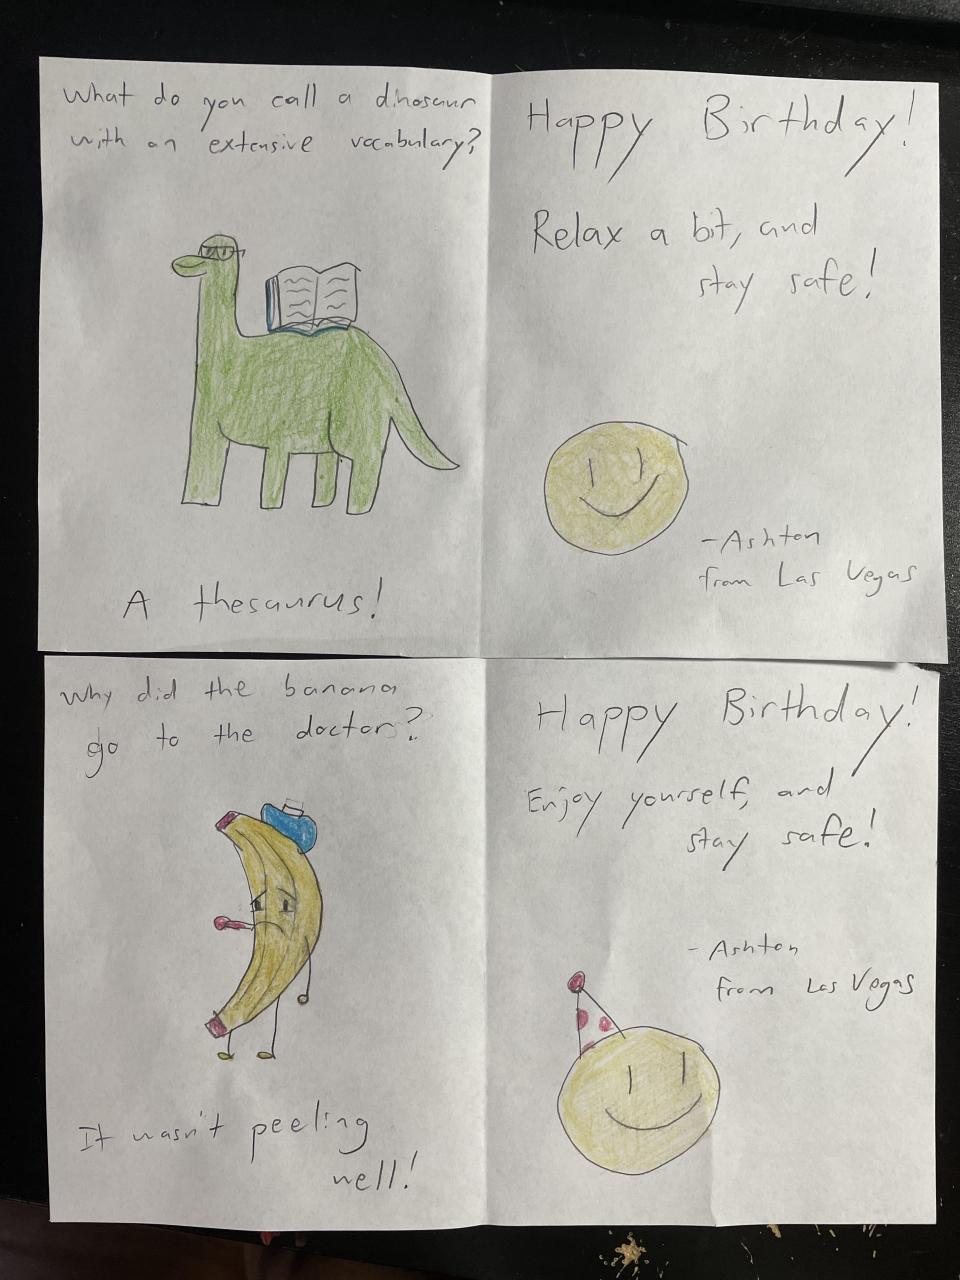 What do you call a dinosaur
with an extensive vocabulary?
A thesaurus!
Happy Birthday!
Relax a bit, and
stay safe!
-Ashton
from Las Vegas
Why did the banana
go to the doctor?
It wasn't peeling
well!
Happy Birthday!
Enjoy yourself, and
stay safe!
- Ashton
from Las Vegas